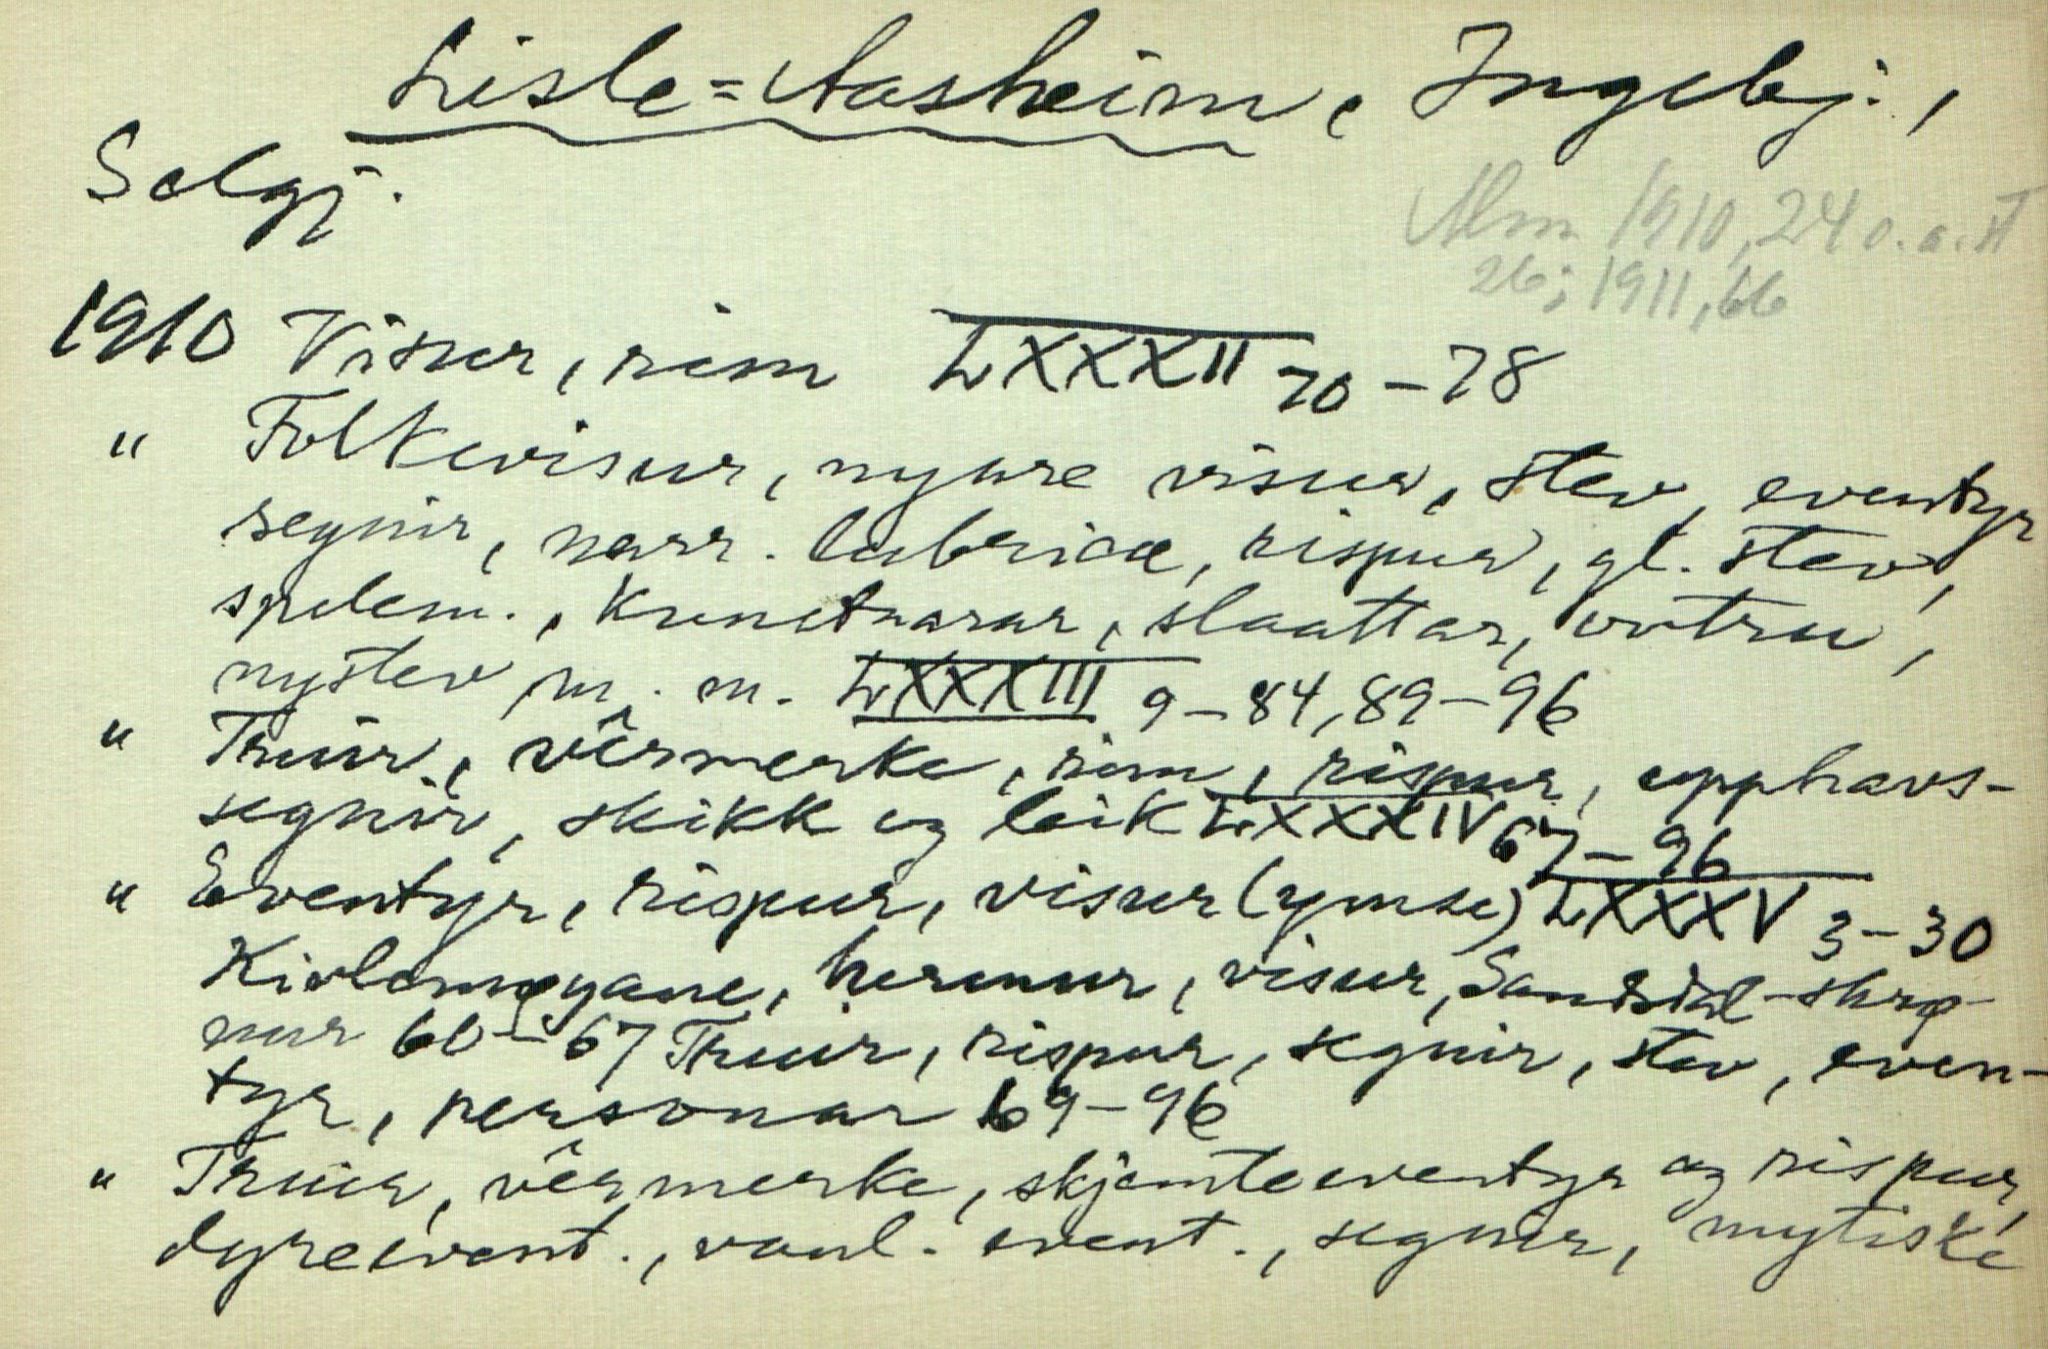 Lisle=Aasheim, Ingebj.,
Selgj.
Alm 1910, 24 o.a.st
26; 1911, 66
1910 Visur, rim LXXXII 70-78
" Folkevisur, nyare visur, stev, eventyr
segnir, narr. lubricæ, rispur, gl. stev,
spelem., Kunstnarar, slaattar, ovtru,
nystev m. m. LXXXIII 9-84, 89-96
" Truir, vêrmerke, rim, rispur, upphavs-
segnir, skikk og leik LXXXIV 67-96
" Eventyr, rispur, visur (ymse) LXXXV 3-30
Kivlemøyane, hermur, visur, Sandsdal-skrø-
nur 60-67 Truir, rispur, segnir, stev, even-
tyr, personar 69-96
" Truir, vêrmerke, skjemteeventyr og rispur,
dyreevent., vanl. event., segnir, mytiske